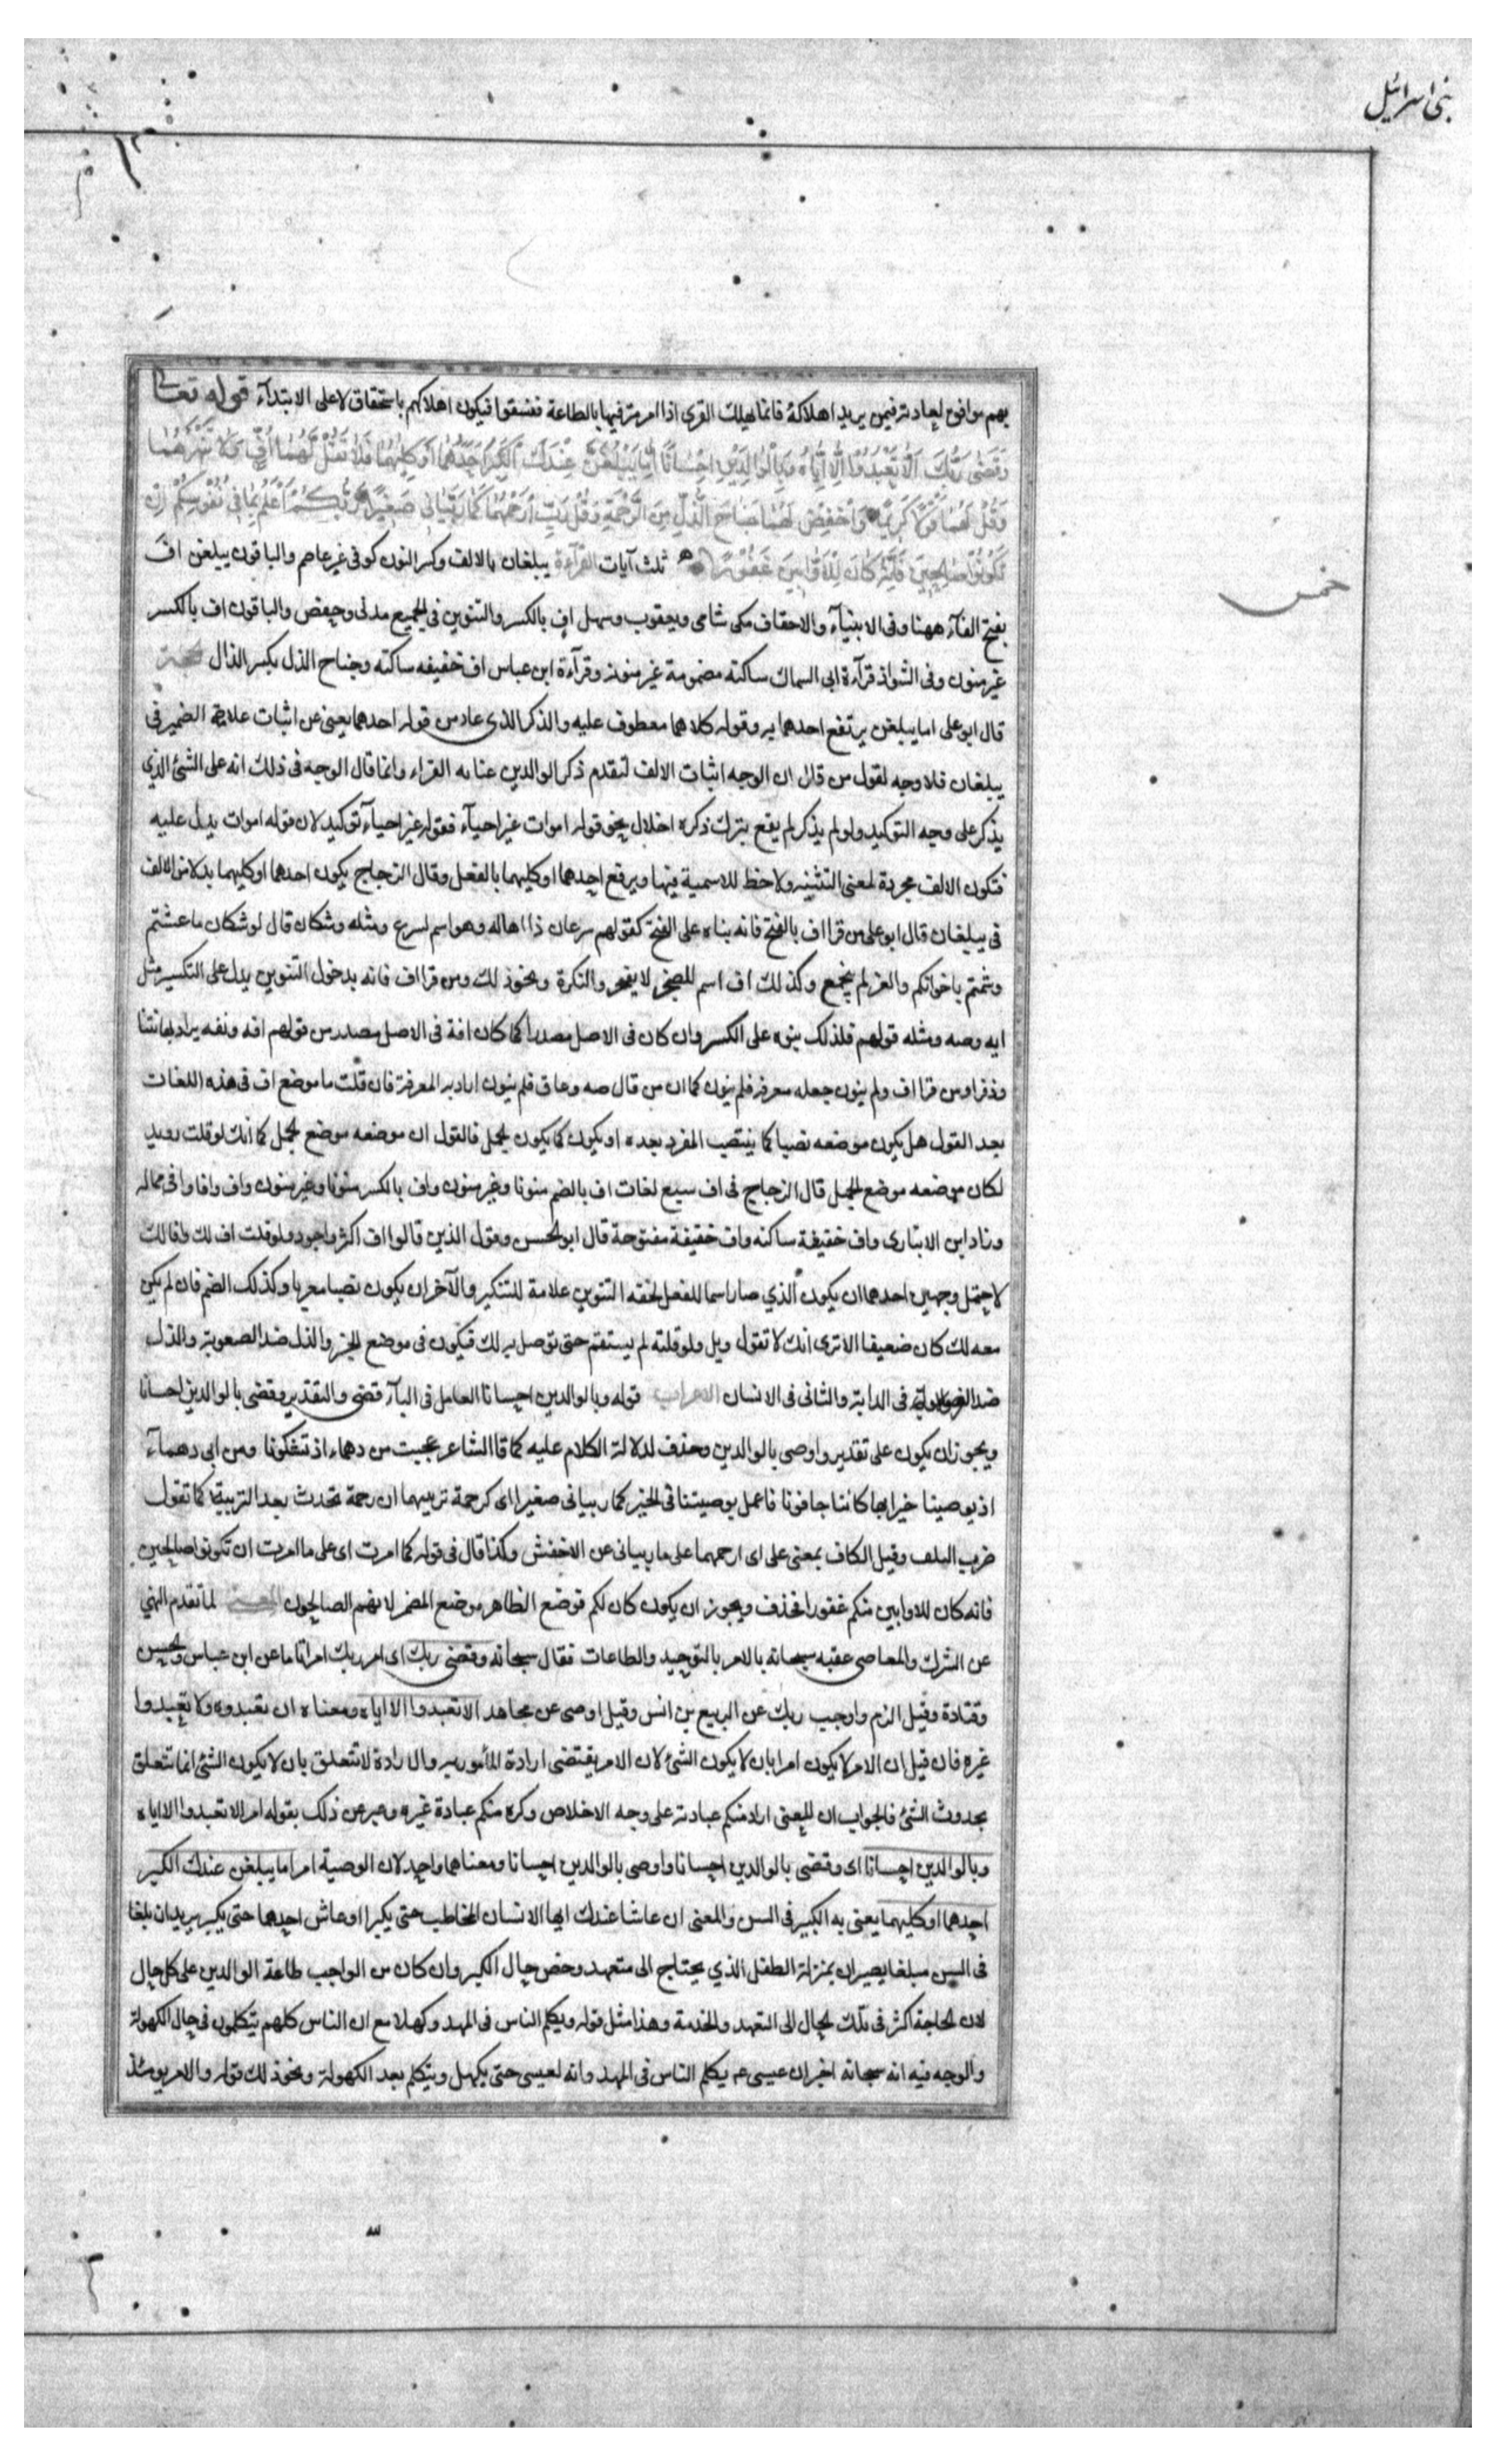 بنى اسرائيل
بهم موافق لعادته فيمن يريد اهلاكه فانما يهلك القرى اذا امر مترفيها بالطاعة ففسقوا فيكون اهلاكهم باستحقاق لا على الابتدآء قوله تعالى
وَقَضٰى رَبُّكَ اَلَّا تَعْبُدُوْا اِلَّا اِيَّاهُ وَبِالْوَالِدَيْنِ اِحْسَانًا اِمَّا يَبْلُغَنَّ عِنْدَكَ الْكِبَرَ اَحَدُهُمَا اَوْ كِلٰيهُمَا فَلَا تَقُلْ لَّهُمَا اُفٍّ وَّلَا تَنْهَرْهُمَا
وَقُلْ لَهُمَا قَوْلًا كَرِيْمًا وَاخْفِضْ لَهُمَا جَنَاحَ الذُّلِّ مِنَ الرَّحْمَةِ وَقُلْ رَبِّ ارْحَمْهُمَا كَمَا رَبَّيَانِى صَغِيْرًا رَبُّكُمْ اَعْلَمُ بِمَا فِى نُفُوْسِكُمْ اِنْ
تَكُوْنُوْا صَالِحِيْنَ فَاِنَّهُ كَانَ لِلْاَوَّابِيْنَ غَفُوْرًا ثلث آيات القرآءة يبلغان بالالف وكسر النون كوفى غير عاصم والباقون يبلغن اف
بفتح الفآء ههنا وفى الانبيآء والاحقاف مكى شامى ويعقوب وسهل اف بالكسر والتنوين فى الجميع مدنى وحفص والباقون اف بالكسر
غير منون وفى الشواذ قرآءة ابى السماك ساكنة مضمومة غير منونة وقرآءة ابن عباس اف خفيفه ساكنه وجناح الذل بكسر الذال
قال ابو على اما يبلغن يرتفع احدهما به وقوله كلاهما معطوف عليه والذكر الذى عاد من قوله احدهما يغنى عن اثبات علامة الضمير فى
يبلغان فلا وجه لقول من قال ان الوجه اثبات الالف لتقدم ذكر الوالدين عنا به الفراء وانما قال الوجه فى ذلك انه على الشئ الذى
يذكر على وجه التوكيد ولو لم يذكر لم يقع بترك ذكره اخلال نحو قوله اموات غير احيآء فقوله غير احيآء توكيد لان قوله اموات يدل عليه
فتكون الالف مجردة لمعنى التثنيه ولا حظ للاسمية فيها ويرفع احدهما او كليهما بالفعل وقال الزجاج يكون احدهما او كليهما بدلا من الالف
فى يبلغان قال ابو على من قرا اف بالفتح فانه بناه على الفتح كقولهم سرعان ذا اهاله وهو اسم لسرع ومثله وشكان قال لوشكان ما عشتم
وشمتم باخوانكم والعز لم يتجمع وكذلك اف اسم للضجر والنكرة ونحو ذلك ومن قرا اف فانه بدخول التنوين يدل على التكسير مثل
ايه وصه ومثله قولهم فلذلك بنوه على الكسر وان كان فى الاصل مصدرا كما كان افة فى الاصل مصدر من قولهم افه وتفه يراد بها نتنا
وذفرا ومن قرا اف ولم ينون جعله معرفة فلم ينون كما ان من قال صه وغاق فلم ينون اراد به المعرفة فان قلت ما موضع اف فى هذه اللغات
بعد القول هل يكون موضعه نصبا كما ينتصب المفرد بعده او يكون كما يكون الجمل فالقول ان موضعه موضع الجمل كما انك لو قلت رويد
لكان موضعه موضع الجمل قال الزجاج فى اف سبع لغات اف بالضم منونا وغير منون واف بالكسر منونا وغير منون واف وافا وافى ممالة
وزاد ابن الانبارى واف خفيفة ساكنه واف خفيفة مفتوحة قال ابو الحسن وقول الذين قالوا اف اكثر واجود ولو قلت اف لك وافا لك
لاحتمل وجهين احدهما ان يكون الذي صار اسما للفعل لحقه التنوين علامة للتنكير والآخر ان يكون نصبا معربا وكذلك الضم فان لم يكن
معه لك كان ضعيفا الا ترى انك لا تقول ويل ولو قلته لم يستقم حتى توصل به لك فيكون فى موضع الخبر والذل ضد الصعوبة والذل
ضد العز فى الدابة والثانى فى الانسان الاعراب قوله وبالوالدين احسانا العامل فى البآء قضى والتقدير وقضى بالوالدين احسانا
ويجوز ان يكون على تقدير واوصى بالوالدين وحذف لدلالة الكلام عليه كما قا الشاعر عجبت من دهماء اذ تشكونا ومن ابى دهمآء
اذ يوصينا خيرا بها كاننا جافونا فاعمل يوصينا فى الخير كما ربيانى صغيرا اى كرحمة تربيهما ان رحمة تحدث بعد التربية كما تقول
ضرب التلف وقيل الكاف بمعنى على اى ارحمهما على ما ربيانى عن الاخفش وكذا قال فى قوله كما امرت اى على ما امرت ان تكونوا صالحين
فانه كان للاوابين منكم غفورا فحذف ويجوز ان يكون كان لكم فوضع الظاهر موضع المضمر لانهم الصالحون لما تقدم النهي
عن الشرك والمعاصى عقبه سبحانه بالامر بالتوحيد والطاعات فقال سبحانه وقضى ربك اى امر ربك امرا باتا عن ابن عباس والحسن
وقتادة وقيل الزم واوجب ربك عن الربيع بن انس وقيل اوصى عن مجاهد الا تعبدوا الا اياه ومعناه ان تعبدوه ولا تعبدوا
غيره فان قيل ان الامر لا يكون امرا بان لا يكون الشئ لان الامر يقتضى ارادة المأمور به والارادة لا تتعلق بان لا يكون الشئ انما تتعلق
بحدوث الشئ فالجواب ان المعنى اراد منكم عبادته على وجه الاخلاص وكره منكم عبادة غيره وعبر عن ذلك بقوله امر الا تعبدوا الا اياه
وبالوالدين احسانا اى وقضى بالوالدين احسانا واوصى بالوالدين احسانا ومعناهما واحد لان الوصية امر اما يبلغن عندك الكبر
احدهما او كليهما يعنى به الكبير فى السن والمعنى ان عاشا عندك ايها الانسان المخاطب حتى يكبرا او عاش احدهما حتى يكبر يريد ان بلغا
فى السن مبلغا يصيران بمنزلة الطفل الذي يحتاج الى متعهد وخص حال الكبر وان كان من الواجب طاعة الوالدين على كل حال
لان الحاجة اكثر فى تلك الحال الى التعهد والخدمة وهذا مثل قوله ويكلم الناس فى المهد وكهلا مع ان الناس كلهم يتكلمون فى حال الكهولة
والوجه فيه انه سبحانه اخبر ان عيسى ع يكلم الناس فى المهد وانه لعيسى حتى يكهل ويتكلم بعد الكهولة ونحو ذلك قوله والامر يومئذ
خمس